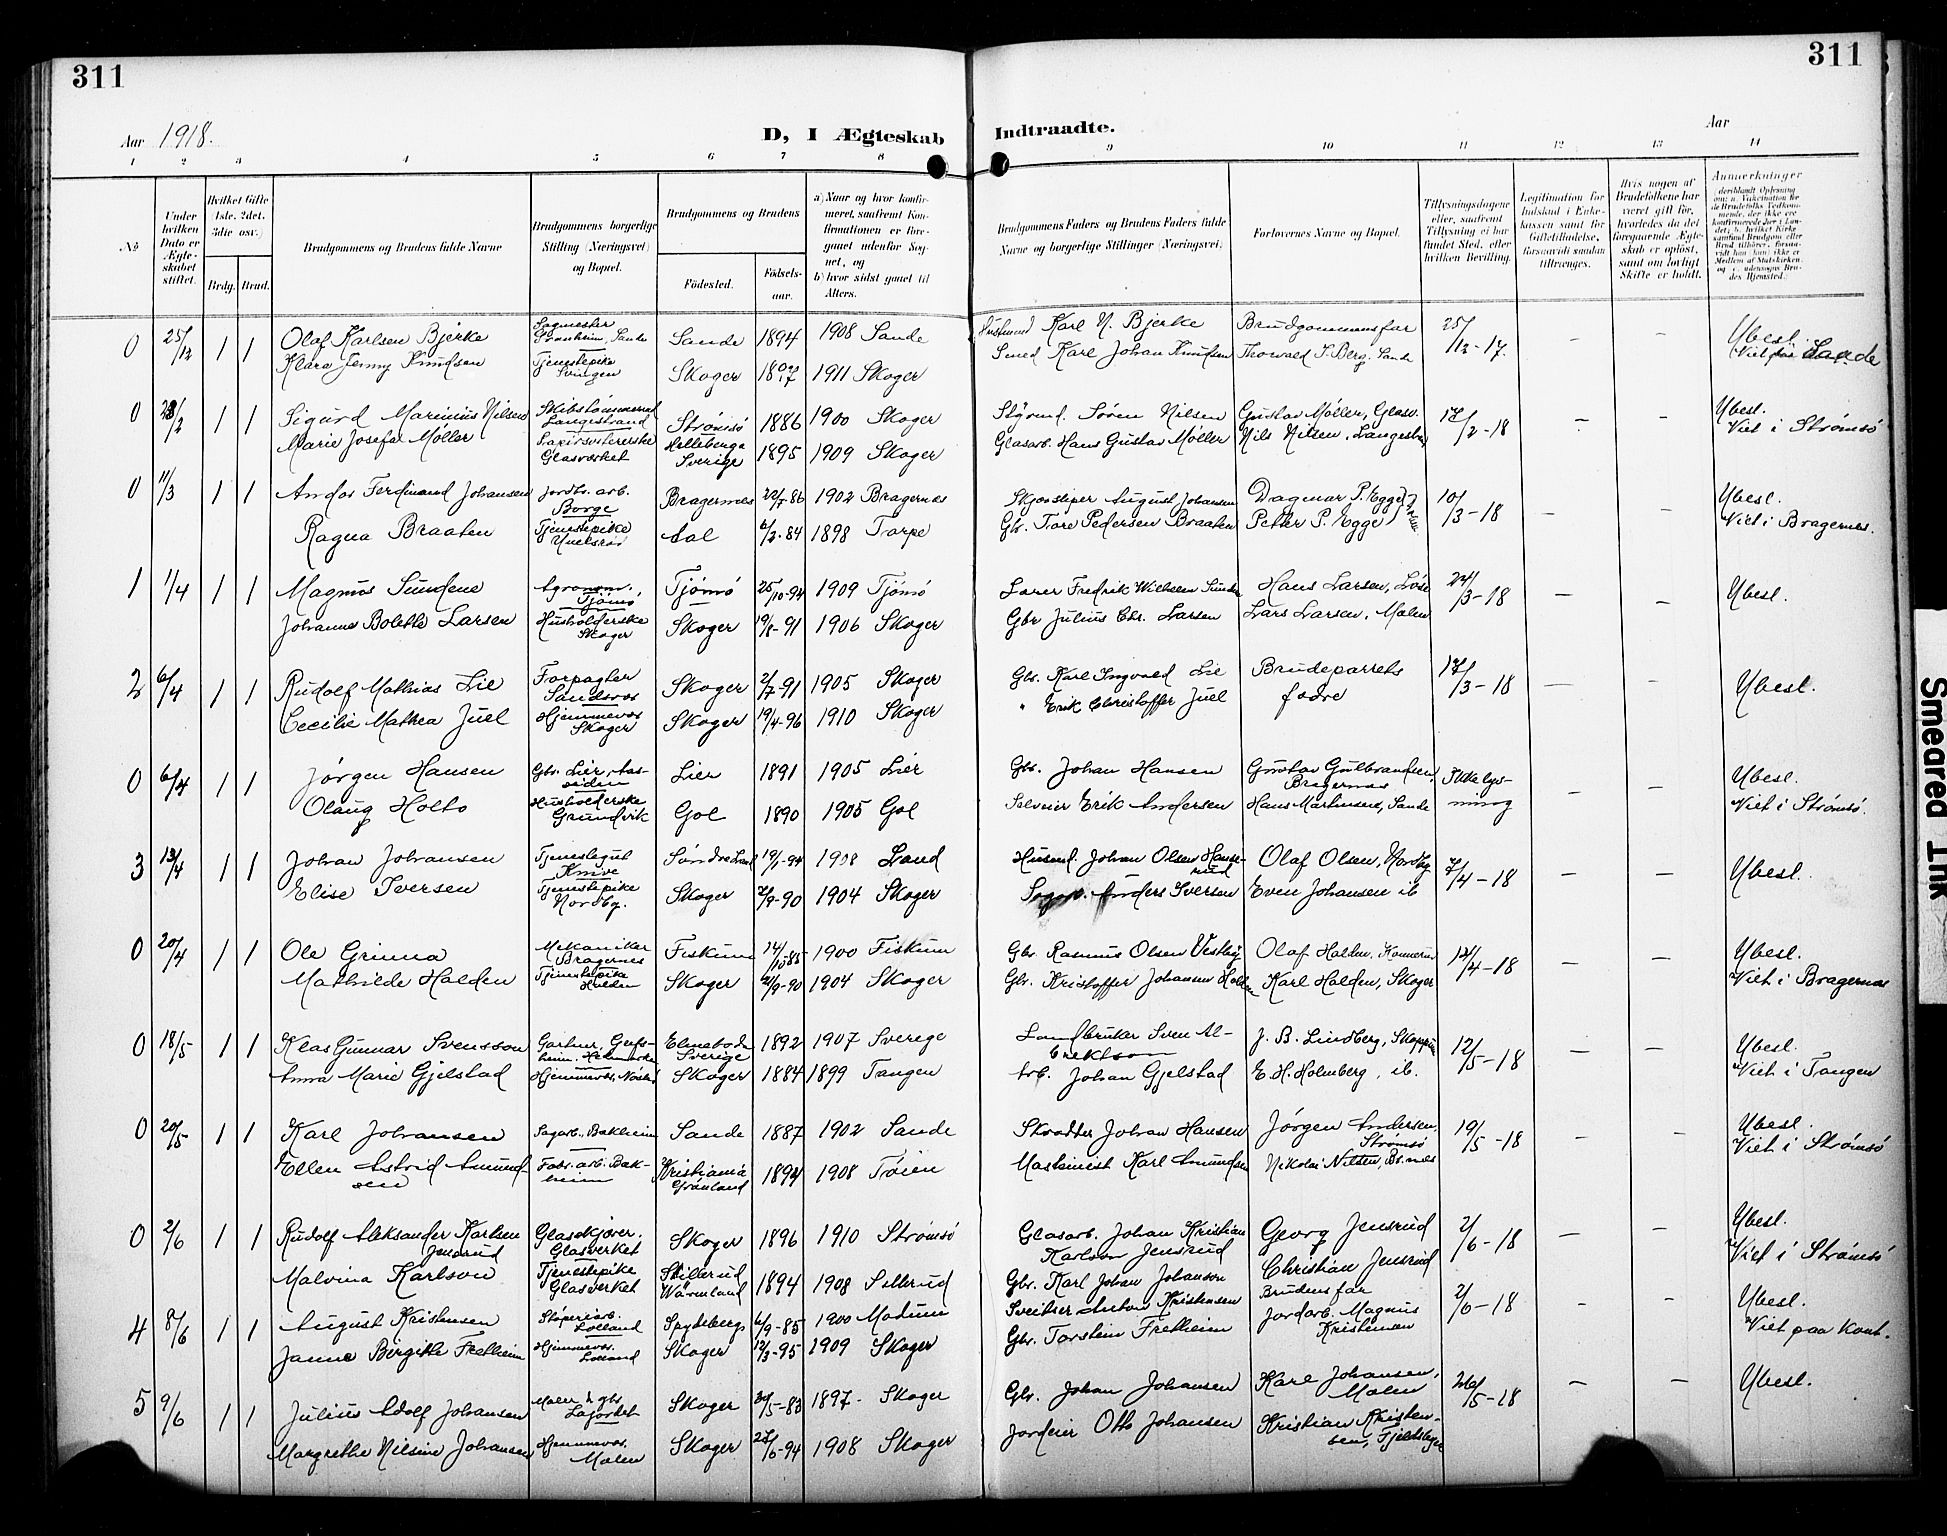 311
311
Aar 1918.
D, I Ægteskab Indtraadte.
Aar
1 2 3 4 5 6 7 8 9 10 11 12 13 14
No.
Under hvilken Dato er Ægteskabet stiftet.
Hvilket Gifte (1ste, 2det, 3die osv.)
Brdg. Brud.
Brudgommens og Brudens fulde Navne
Brudgommens borgerlige Stilling (Næringsvei) og Bopæl.
Brudgommens og Brudens
Fødested.
Fødselsaar.
a) Naar og hvor konfirmeret, saafremt Konfirmationen er foregaaet udenfor Sognet, og
b) hvor sidst gaaet til Alters.
Brudgommens Faders og Brudens Faders fulde Navne og borgerlige Stillinger (Næringsvei)
Forlovernes Navne og Bopæl.
Tillysningsdagene eller, saafremt Tillysning ei har fundet Sted, efter hvilken Bevilling.
Legitimation for Indskud i Enkekassen samt for Giftetilladelse, forsaavidt saadan tiltrænges.
Hvis nogen af Brudefolkene har været gift før, hvorledes da det foregaaende Ægteskab er opløst, samt om lovligt Skifte er holdt.
Anmerkninger
0 25/12 1 1 Olaf Karlsen Bjerke Sagmester Sande 1894 1908 Sande Husmand Karl N. Bjerke Brudgommens far 25/12-17. — Ubesl.
Klara Jenny Knudsen Tjenestepike Svingen Skoger 1897 1911 Skoger Smed Karl Johan Knudsen Thorvald S. Berg, Sande Viet i Sande
0 23/2 1 1 Sigurd Marinius Nilsen Skibstømmermand Langestrand Strømsø 1886 1900 Skoger Styrmd. Søren Nilsen Gustav Møller, Glasv. 17/2-18 — — Ubesl.
Marie Josefa Møller Papirsortererske Glasværket Helleberga Sverige 1895 1909 Skoger Glasarb. Hans Gustav Møller Nils Nilsen, Langestr. Viet i Strømsø
0 11/3 1 1 Andor Ferdinand Johansen Jordbr. arb. Borge Bragernes 22/7-86 1902 Bragernes August Johansen Dagmar P. Egge 10/3-18 — — Ubesl.
Ragna Braaten Tjenestepike Aal 6/2-84 1898 Torpe Gbr. Tore Pedersen Braaten Petter P. Egge Viet i Bragernes.
1 1/4 1 1 Magnus Sundene Agronom, Tjømø Tjømø 25/10-94 1909 Tjømø Lærer Fredrik Wilhelm Sunde Hans Larsen, 24/3-18 — — Ubesl.
Johanne Bolette Larsen Husholderske Skoger Skoger 19/8-91 1906 Skoger Gbr Julius Chr. Larsen Lars Larsen, Malen
2 6/4 1 1 Rudolf Mathias Lie Forpagter Sandsvær Skoger 2/7-91 1905 Skoger Gbr. Karl Ingvald Lie Brudeparrets 17/3-18 — — Ubesl.
Cecilie Mathea Juel Hjemmevær. Skoger Skoger 19/4-96 1910 Skoger " Erik Christoffer Juel fædre
0 6/4 1 1 Jørgen Hansen Gbr. Lier, Aassiden Lier 1891 1905 Lier Gbr. Johan Hansen Gustav Gulbrandsen, Bragernes Ikke lysning — — Ubesl.
Olaug Holto Husholderske Grundvik Gol 1890 1905 Gol Erik Andersen Hans Martinsen, Sande Viet i Strømsø.
3 13/4 1 1 Johan Johansen Tjenestegut Knive Søndre Land 19/1-94 1908 Land Husmd. Johan Olsen Hanserud Olaf Olsen, Nordby 7/4-18 — — Ubesl.
Elise Iversen Tjenestepike Nordby. Skoger 7/9-90 1904 Skoger Anders Iversen Even Johansen ib
0 20/4 1 1 Ole Grinna Mekaniker Bragernes Fiskum 14/10-85 1900 Fiskum Gbr. Rasmus Olsen Vestby Olaf Halden, Konnerud 14/4-18 — — Ubesl.
Mathilde Halden Tjenestepike Halden Skoger 21/9-90 1904 Skoger Gbr. Kristoffer Johannes Halden Karl Halden, Skoger Viet i Bragernes
0 18/5 1 1 Klas Gunnar Svensson Gartner, Elmeboda Sverige 1892 1907 Sverige Landbruker Sven Al- Erektson J. B. Lindberg, 12/5-18 — — Ubesl.
Anna Marie Gjelstad Hjemmevær. Skoger 1884 1899 Tangen Arb. Johan Gjelstad E. H. Holmberg, ib. Viet i Tangen
0 20/5 1 1 Karl Johansen Sagarb., Bakheim Sande 1887 1902 Sande Skrædder Johan Hansen Jørgen Andersen, Strømsø 19/5-18 — — Ubesl.
Ellen Astrid Amundsen Fabr. arb. Bakheim Kristiania Grønland 1894 1908 Tøien Maskinist Karl Amundsen Nikolai Nilsen, Br.nes Viet i Strømsø
0 2/6 1 1 Rudolf Aleksander Karlsen Jensrud Glasskjærer, Glasverket Skoger 1896 1910 Strømsø Glasarb. Johan Kristian Karlson Jensrud Georg Jensrud 2/6-18 — — Ubesl.
Malvina Karlson Tjenestepike Glasverket Sillerud Wärmland 1894 1908 Sillerud Gbr. Karl Johan Johanson Christian Jensrud Viet i Strømsø
4 8/6 1 1 August Kristensen Støperiarb. Lolland Spydeberg 6/9-85 1900 Modum Sveitser Anton Kristensen Brudens far 2/6-18 — — Ubesl.
Janne Birgitte Fretheim Hjemmevær. Lolland Skoger 12/3-95 1909 Skoger Gbr. Torstein Fretheim Jordarb. Magnus Kristensen Viet paa Kont.
5 9/6 1 1 Julius Adolf Johansen Maler & gbr. Skoger 30/5-83 1897 - Skoger Gbr. Johan Johansen Karl Johansen, Malen 26/5-18 — — Ubesl.
Margrethe Nilsine Johansen Hjemmevær. Malen Skoger 28/6-94 1908 Skoger Jordeier Otto Johansen Kristian Kristensen,
Smeared Ink